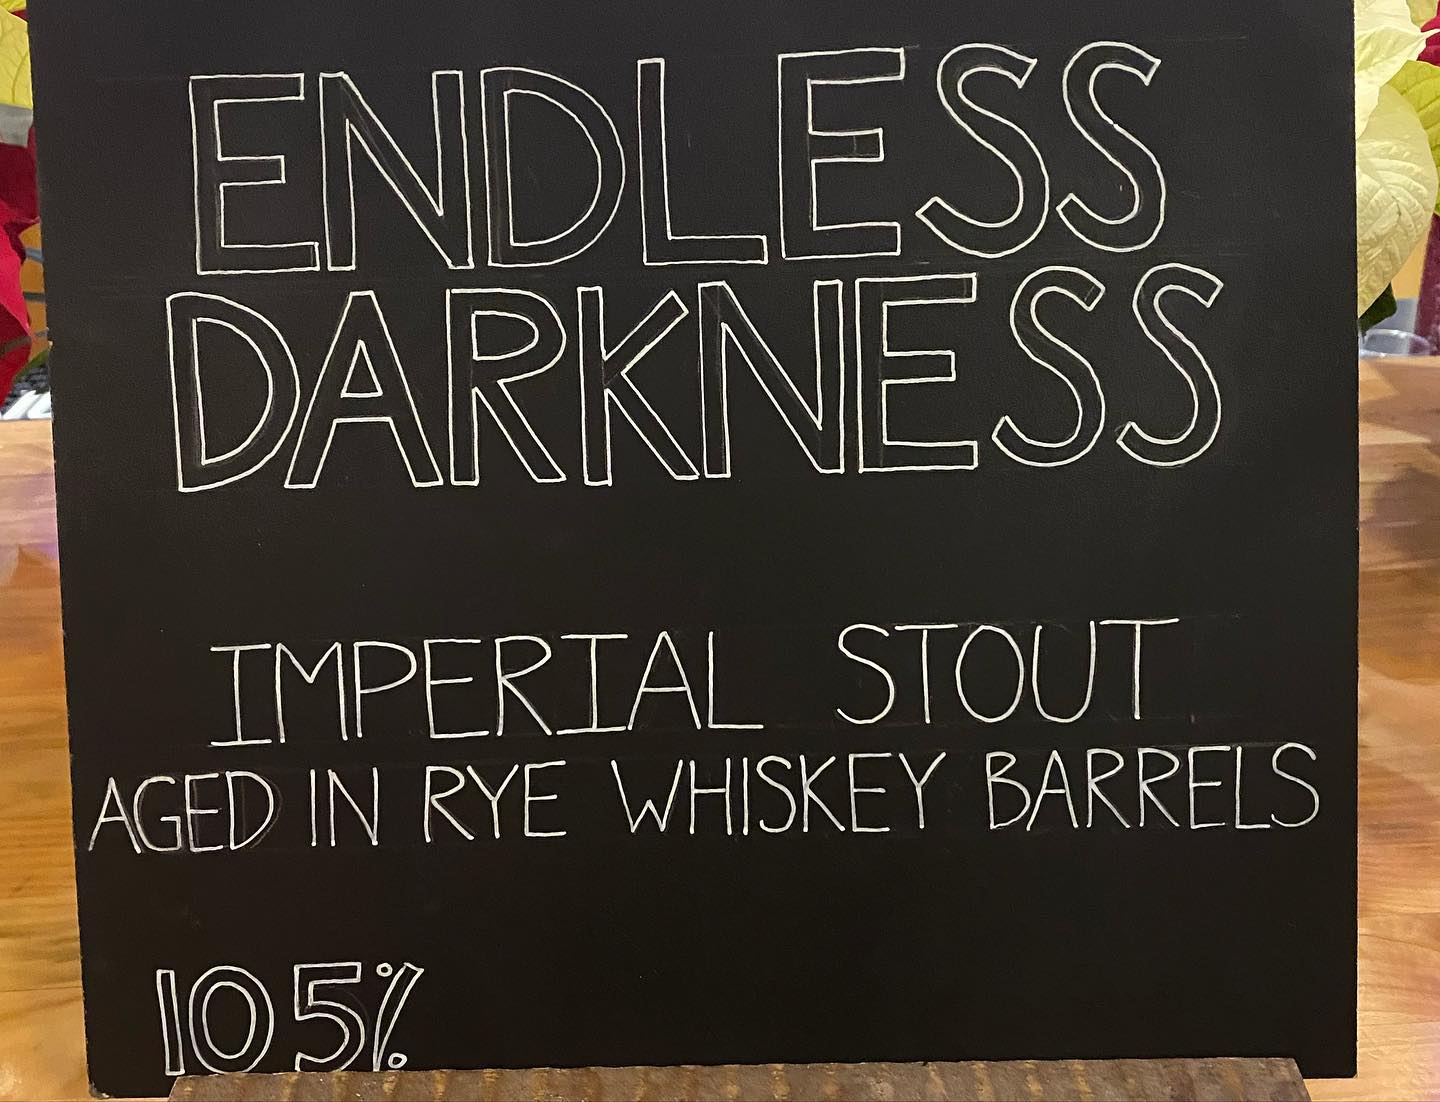 ENDLESS
DARKNESS
IMPERIAL STOUT
AGED IN RYE WHISKEY BARRELS
10 5%